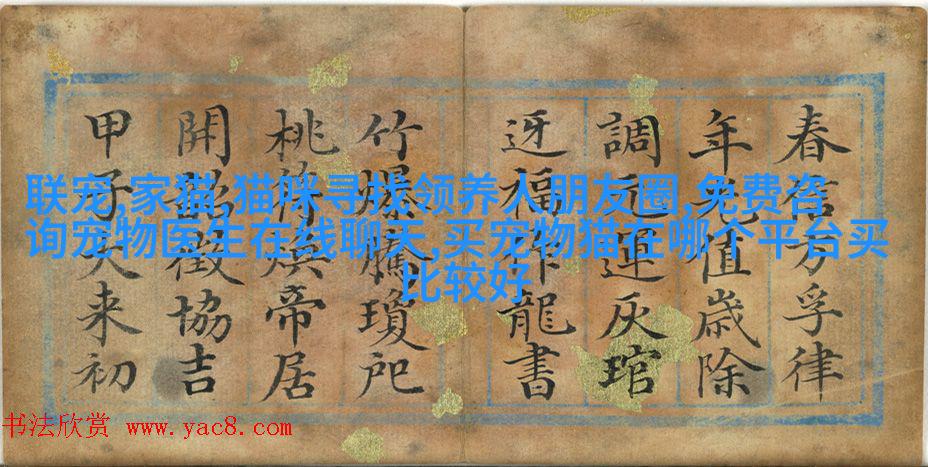 春信方孚律
年光值歲除
調元運灰琯
迓福龍書
竹爆騰瓊戺
桃符煥帝居
開韶徵協吉
甲子来初
联宠,家猫,猫咪寻找领养人朋友圈,免费咨
询宠物医生在线聊天,买宠物猫在哪个平台买
比较好
书法欣赏 www.yac8.com